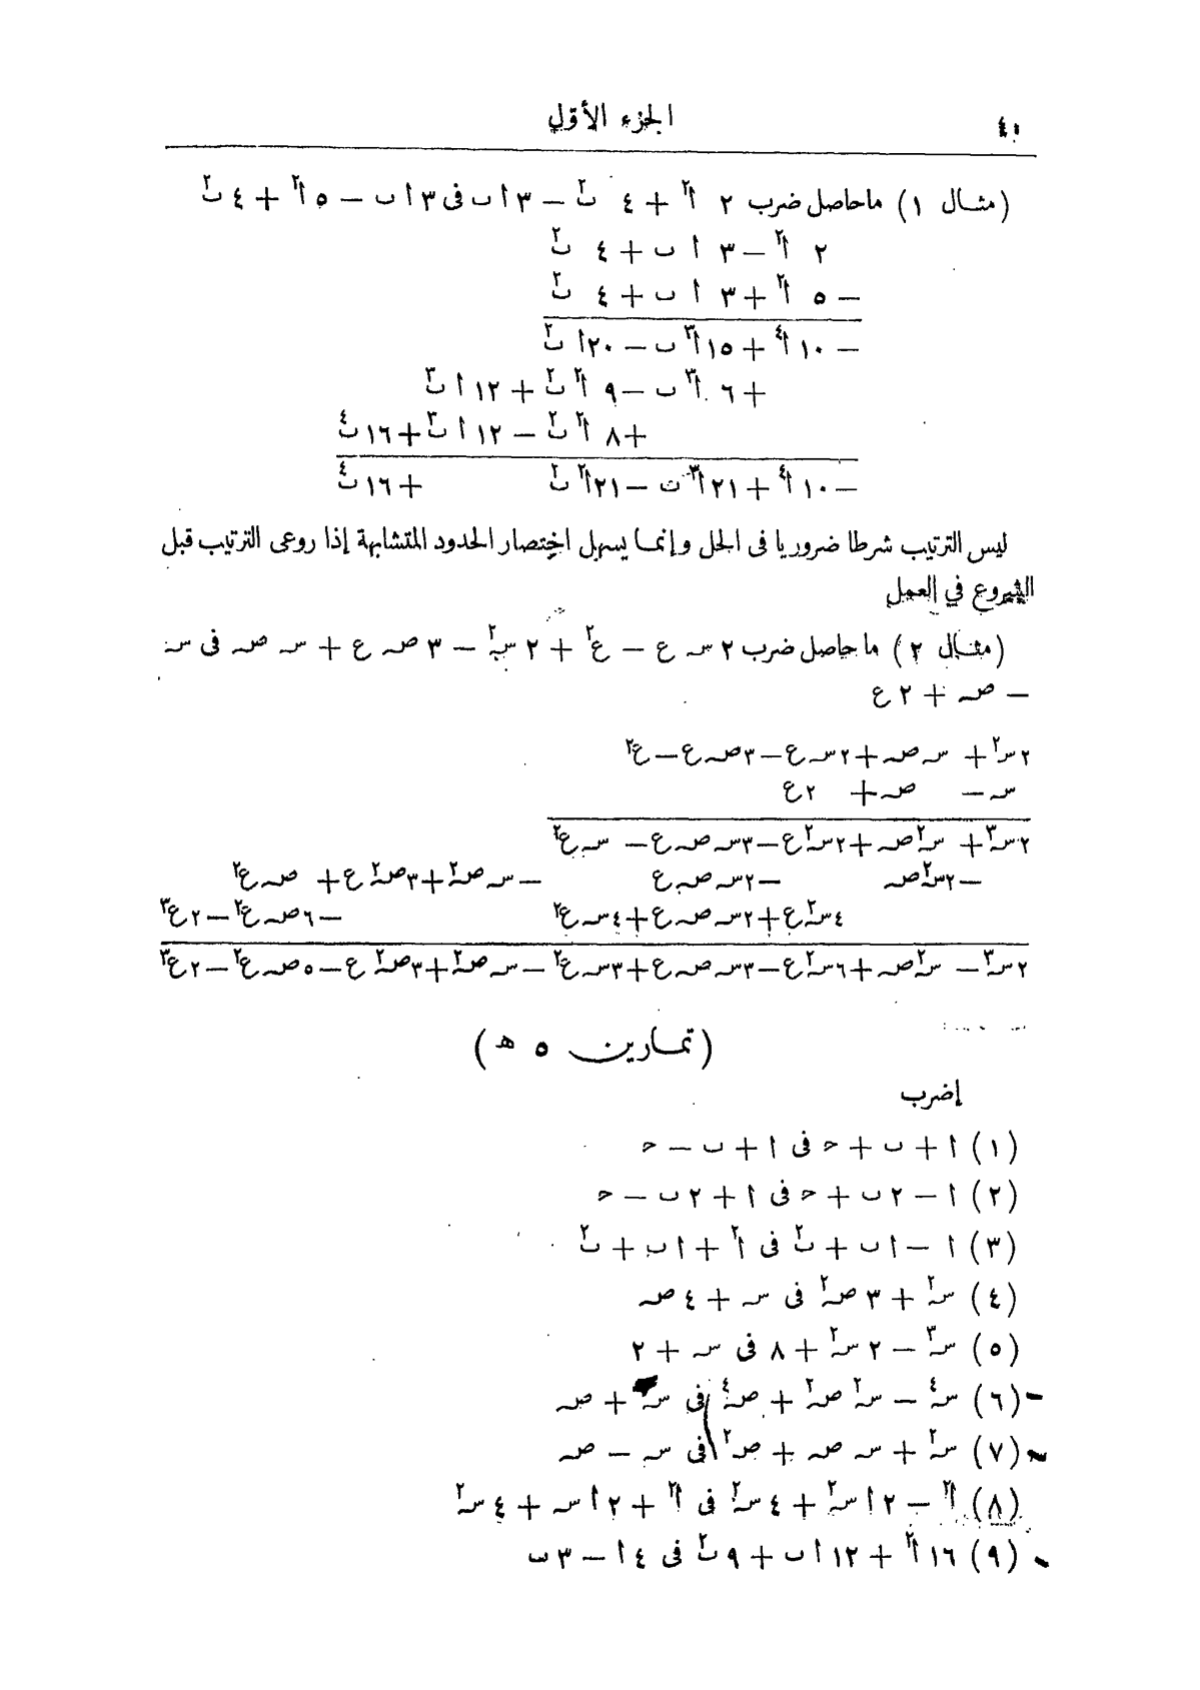 ٤٠
الجزء الأوّل
(مثال ١) ما حاصل ضرب ٢ ا٢ + ٤ ب٢ − ٣ ا ب فى ٣ ا ب − ٥ ا٢ + ٤ ب٢
٢ ا٢ − ٣ ا ب + ٤ ب٢
− ٥ ا٢ + ٣ ا ب + ٤ ب٢
− ١٠ ا٤ + ١٥ ا٣ ب − ٢٠ ا ب٢
+ ٦ ا٣ ب − ٩ ا٢ ب٢ + ١٢ ا ب٣
+ ٨ ا٢ ب٢ − ١٢ ا ب٣ + ١٦ ب٤
− ١٠ ا٤ + ٢١ ا٣ ب − ٢١ ا٢ ب٢ + ١٦ ب٤
ليس الترتيب شرطا ضروريا فى الحل وإنما يسهل اختصار الحدود المتشابهة إذا روعى الترتيب قبل
الشروع في العمل
(مثال ٢) ما حاصل ضرب ٢ س ع − ع٢ + ٢ س٢ − ٣ ص ع + س ص فى س
− ص + ٢ ع
٢ س٢ + س ص + ٢ س ع − ٣ ص ع − ع٢
س − ص + ٢ ع
٢ س٣ + س٢ ص + ٢ س٢ ع − ٣ س ص ع − س ع٢
− ٢ س٢ ص − ٢ س ص ع − س ص٢ + ٣ ص٢ ع + ص ع٢
٤ س٢ ع + ٢ س ص ع + ٤ س ع٢ − ٦ ص ع٢ − ٢ ع٣
٢ س٣ − س٢ ص + ٦ س٢ ع − ٣ س ص ع + ٣ س ع٢ − س ص٢ + ٣ ص٢ ع − ٥ ص ع٢ − ٢ ع٣
(تمارين ٥ هـ)
إضرب
(١) ا + ب + حـ فى ا + ب − حـ
(٢) ا − ٢ ب + حـ فى ا + ٢ ب − حـ
(٣) ا − ا ب + ب٢ فى ا٢ + ا ب + ب٢
(٤) س٢ + ٣ ص٢ فى س + ٤ ص
(٥) س٣ − ٢ س٢ + ٨ فى س + ٢
(٦) س٤ − س٢ ص٢ + ص٤ فى س + ص
(٧) س٢ + س ص + ص٢ فى س − ص
(٨) ا٢ − ٢ ا س٢ + ٤ س٢ فى ا٢ + ٢ ا س + ٤ س٢
(٩) ١٦ ا٢ + ١٢ ا ب + ٩ ب٢ فى ٤ ا − ٣ ب